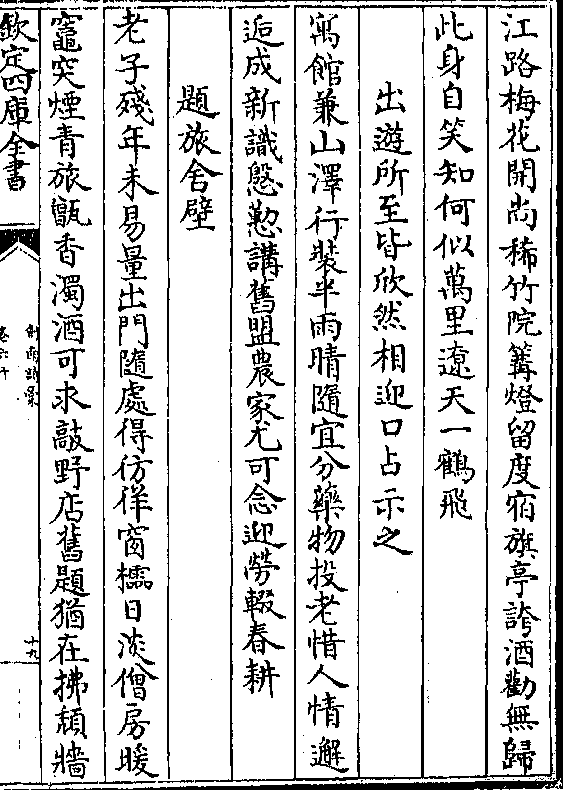 江路梅花開尚稀竹院篝燈留度宿旗亭誇酒勸無歸
此身自笑知何似萬里遼天一鶴飛
出遊所至皆欣然相迎口占示之
寓館兼山澤行裝半雨晴隨宜分藥物投老惜人情邂
逅成新識慇懃講舊盟農家尤可念迎勞輟春耕
題旅舍壁
老子殘年未易量出門隨處得彷徉窗櫺日淡僧房暖
竈突煙青旅甑香濁酒可求敲野店舊題猶在拂頽牆
欽定四庫全書
劍南詩稾
卷六十
十九